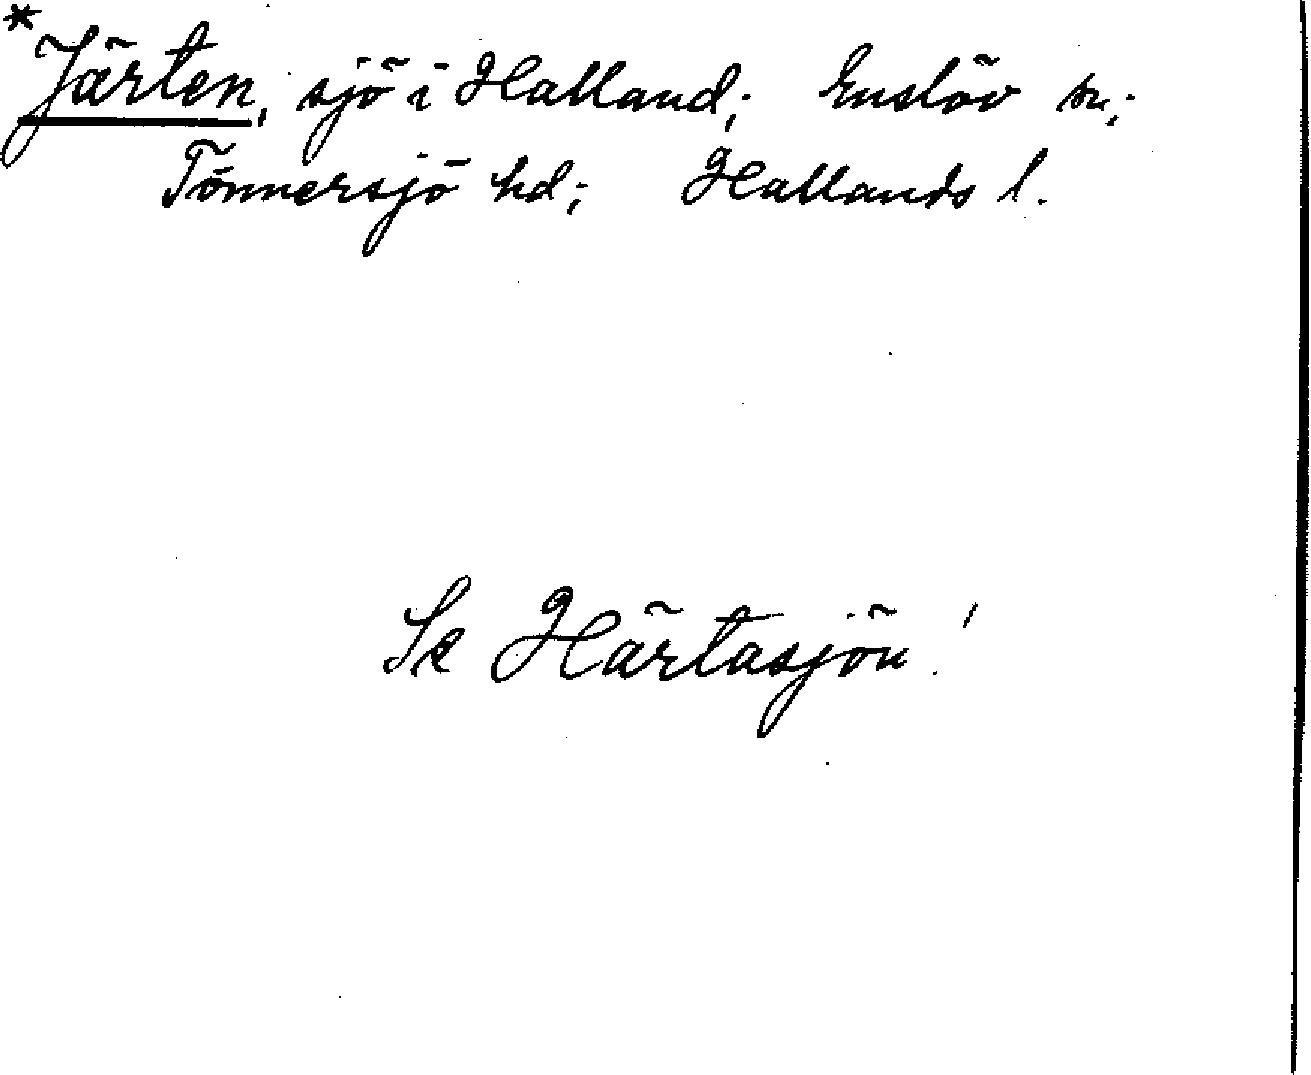 *Järten, sjö i Halland; Enslöv sn;
Tönnersjö hd; Hallands l.
Se Härtasjön!